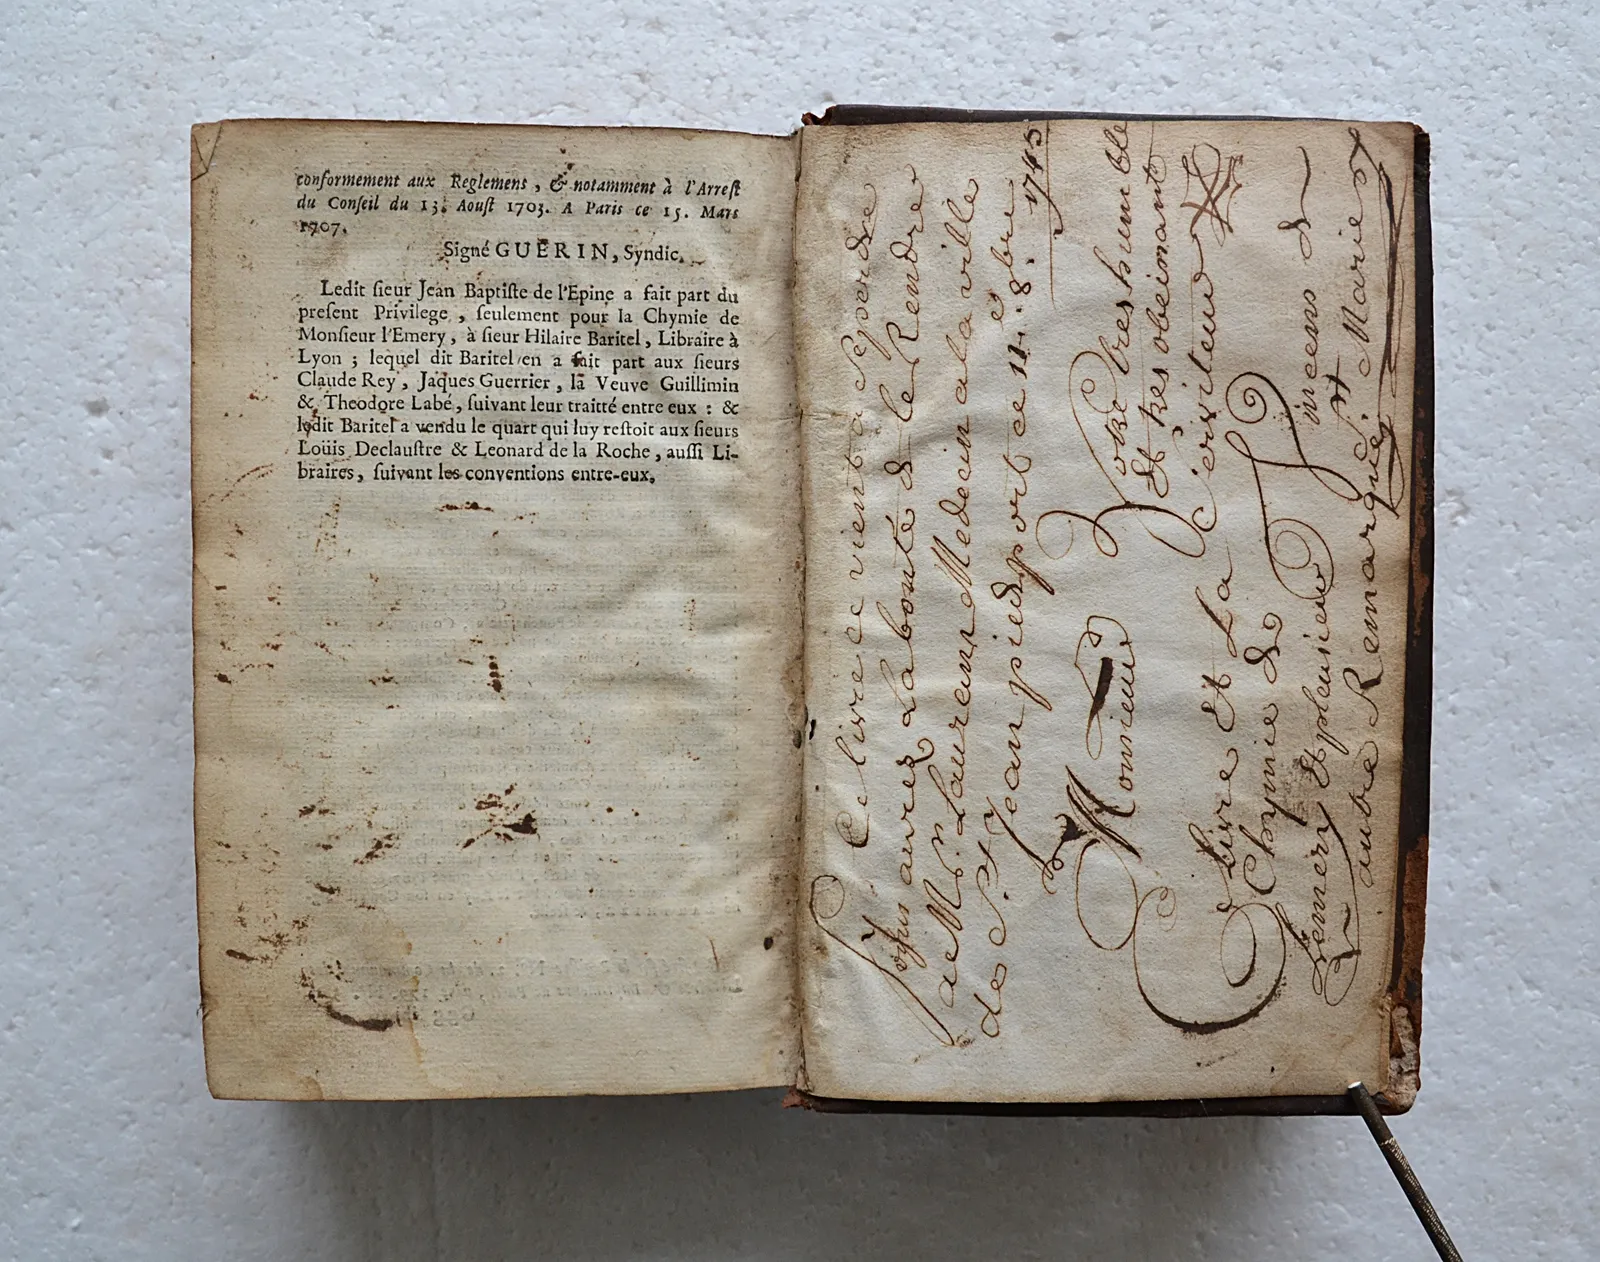 conformement aux Reglemens, & notamment à l'Arrest
du Conseil du 13. Aoust 1703. A Paris ce 15. Mars
1707.
Signé GUERIN, Syndic.
Ledit sieur Jean Baptiste de l'Epine a fait part du
present Privilege, seulement pour la Chymie de
Monsieur l'Emery, à sieur Hilaire Baritel, Libraire à
Lyon; lequel dit Baritel en a fait part aux sieurs
Claude Rey, Jaques Guerrier, la Veuve Guillimin
& Theodore Labé, suivant leur traitté entre eux: &
ledit Baritel a vendu le quart qui luy restoit aux sieurs
Loüis Declaustre & Leonard de la Roche, aussi Li-
braires, suivant les conventions entre-eux.
Ce livre ce vient a Seperdre
Vous aures La bonté de le Rendre
a Mr. Laurenne Medecin a la ville
de St. Jean pied port ce 11e. 8bre. 1743
Monsieur
Votre tres humble
Et tres obeinant
Cerviteur
Livre Et La
Chymie de
Lemery Et plusieur
autre Remarques
St Marie